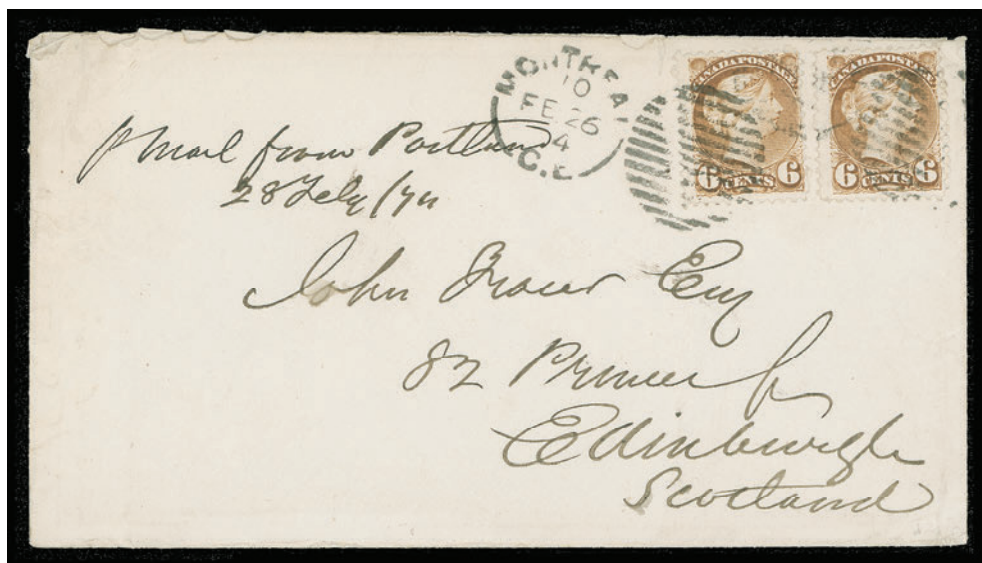 MONTREAL
10
FE 26
4
C.E
CANADA POSTAGE
6 CENTS 6
CANADA POSTAGE
6 CENTS 6
p Mail from Portland
28 Feby/74
John Esq
82 Princes
Edinburgh
Scotland